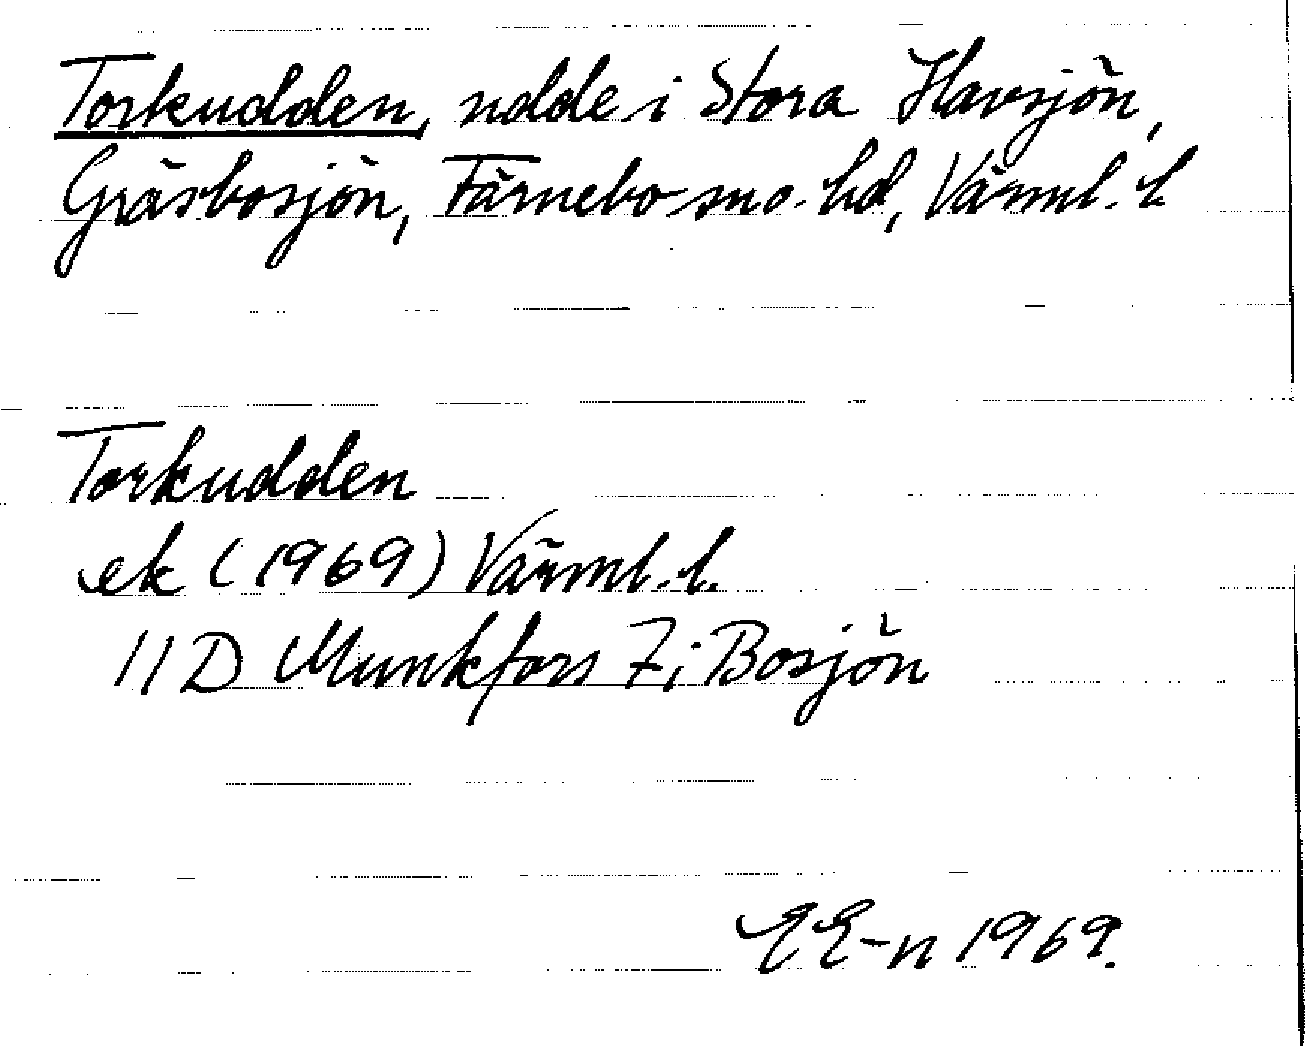 Torkudden, udde i Stora Havsjön,
Gräsbosjön, Färnebo sno. hd, Värml. l.
Torkudden
ek (1969) Värml. l.
11D Munkfors 7i Bosjön
EE-n 1969.